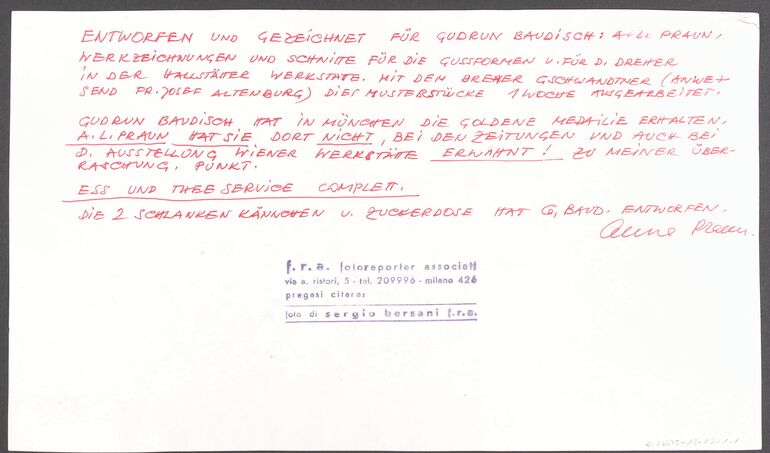 ENTWORFEN UND GEZEICHNET FÜR GUDRUN BAUDISCH: A.L. PRAUN,
WERKZEICHNUNGEN UND SCHNITTE FÜR DIE GUSSFORMEN U. FÜR D. DREHER
IN DER HALLSTÄTTER WERKSTÄTE. MIT DEM DREHER GSCHWANDTNER (ANWE-
SEND FR. JOSEF ALTENBURG) DIES MUSTERSTÜCKE 1 WOCHE AUSGEARBEITET.
GUDRUN BAUDISCH HAT IN MÜNCHEN DIE GOLDENE MEDAILIE ERHALTEN.
A.L. PRAUN HAT SIE DORT NICHT, BEI DEN ZEITUNGEN UND AUCH BEI
D. AUSSTELLUNG WIENER WERKSTÄTE ERWÄHNT! ZU MEINER ÜBER-
RASCHUNG. PUNKT.
ESS UND THEE SERVICE COMPLETT.
DIE 2 SCHLANKEN KÄNNCHEN U. ZUCKERDOSE HAT G. BAUD. ENTWORFEN.
Anna Praun.
f.r.a. fotoreporter associati
via a. ristori, 5 - tel. 209996 - milano 426
pregasi citare:
foto di sergio bersani f.r.a.